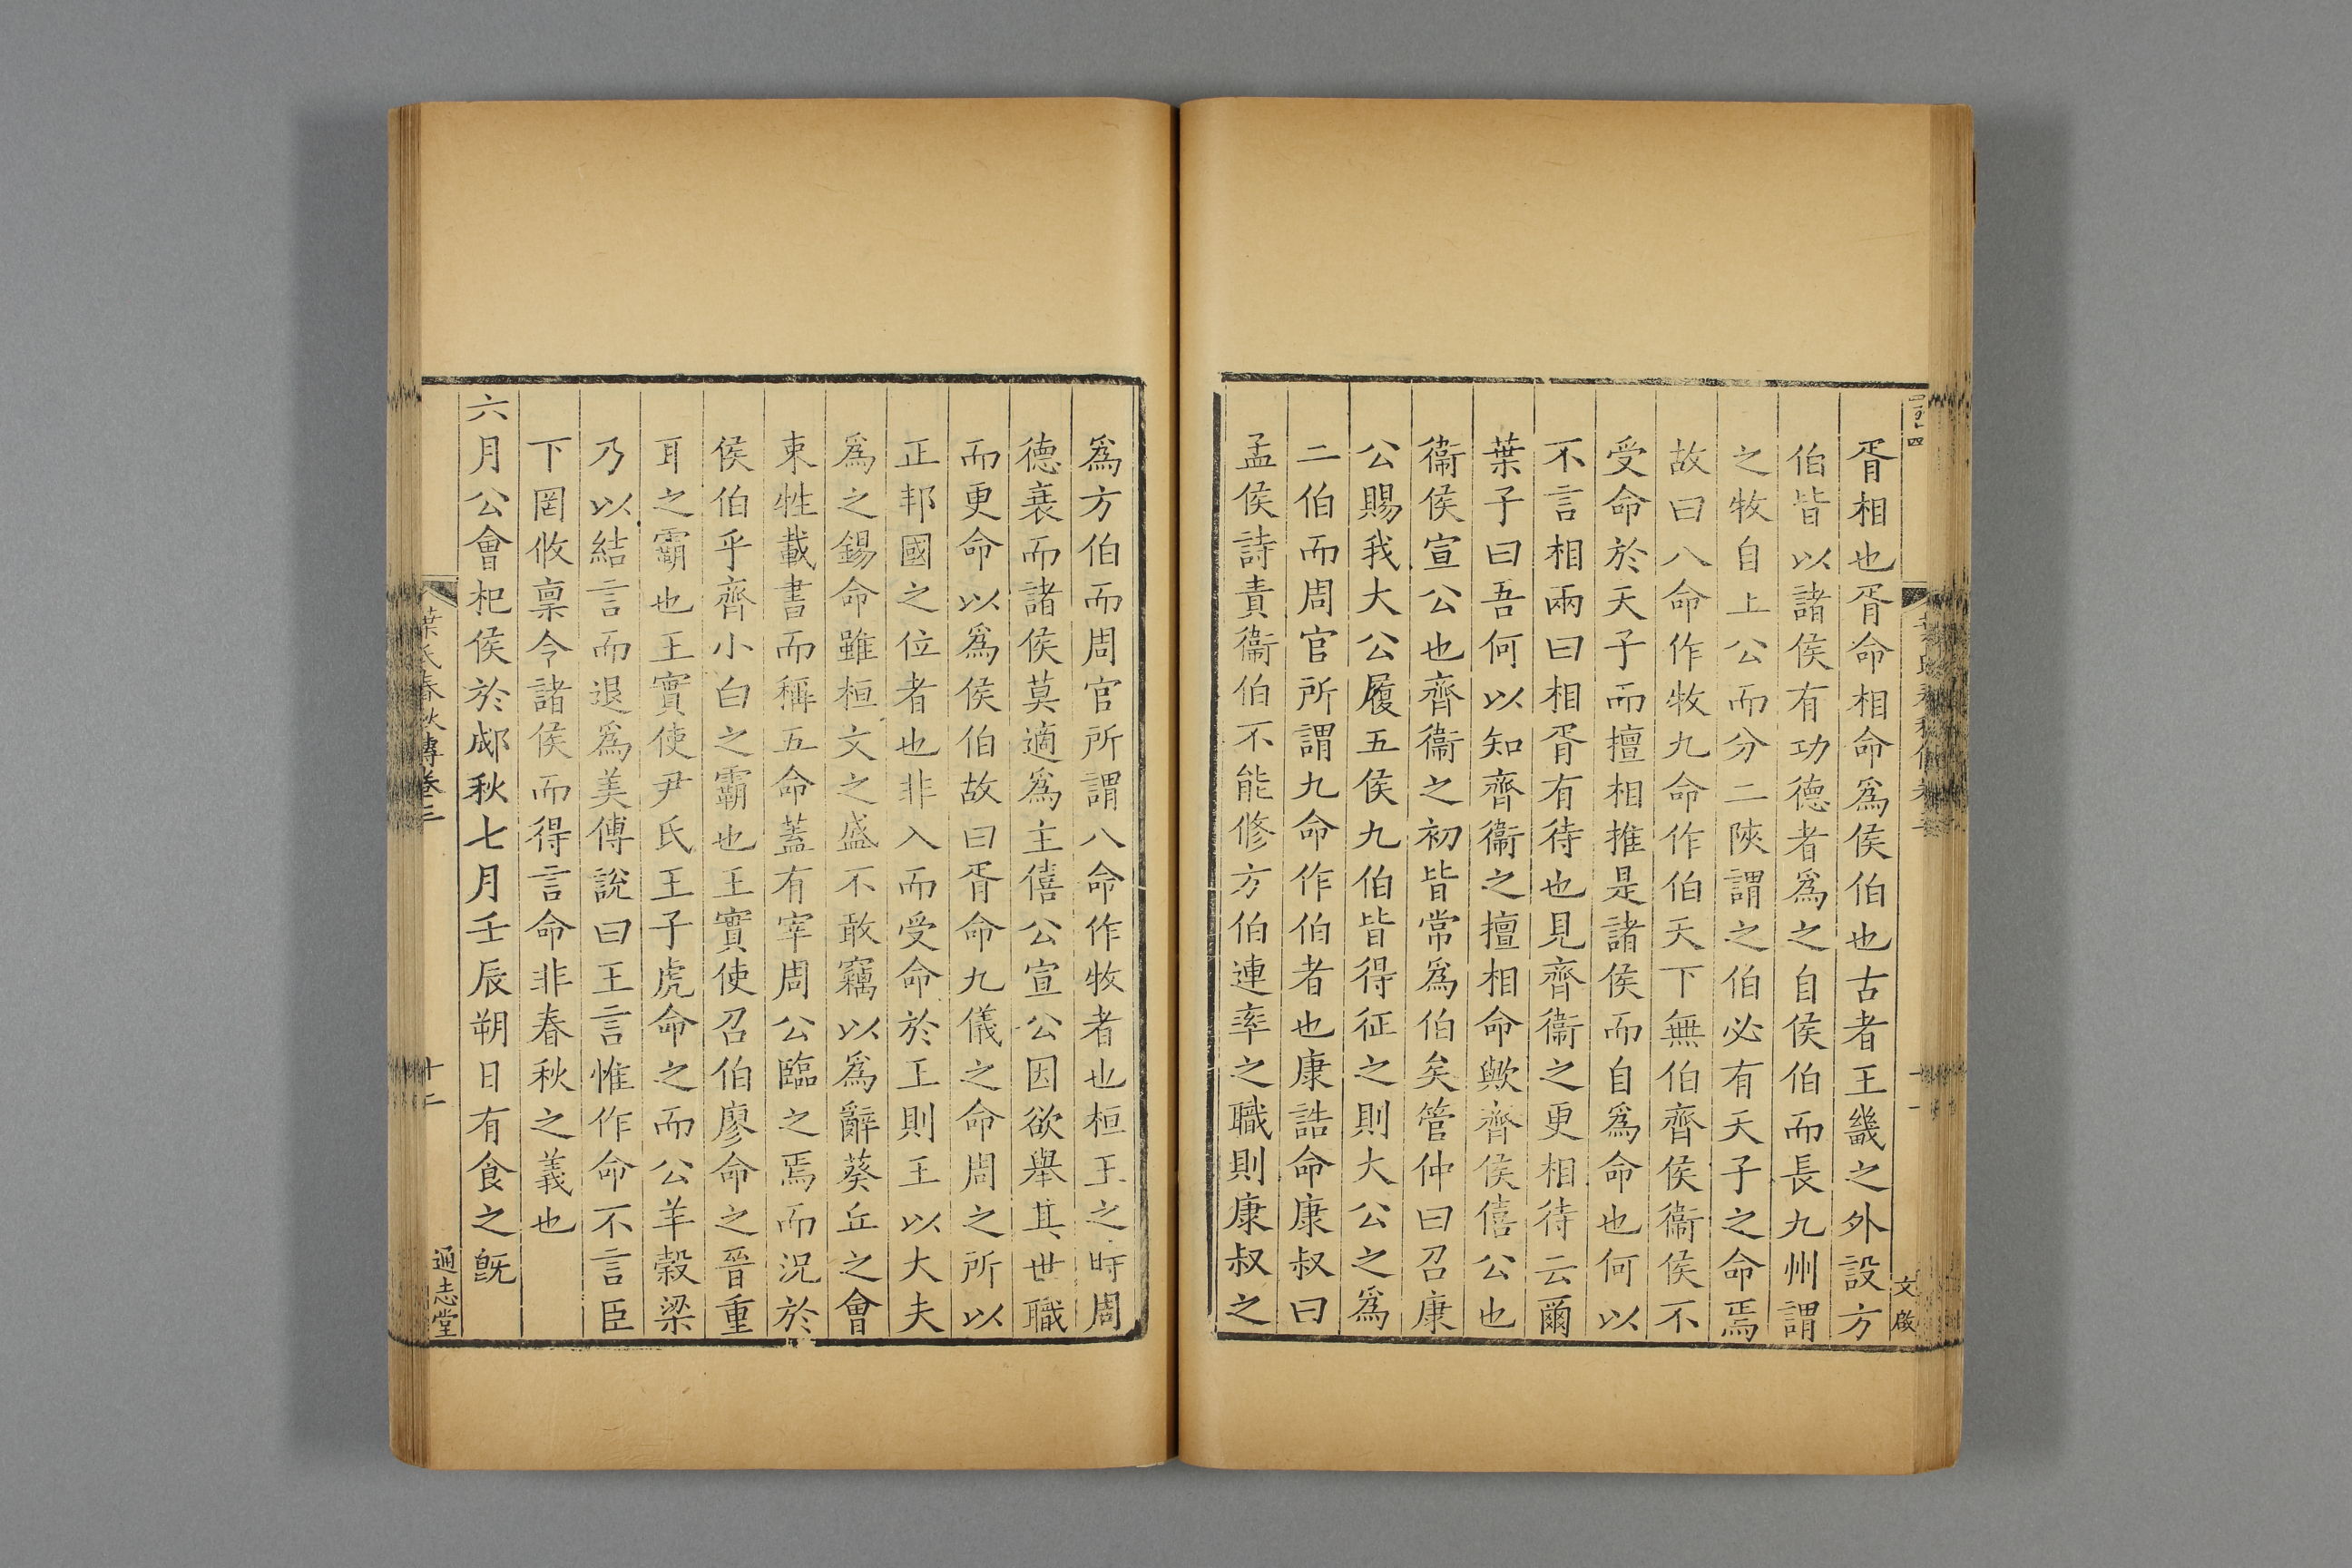 文啟
胥相也胥命相命爲侯伯也古者王畿之外設方
伯皆以諸侯有功德者爲之自侯伯而長九州謂
之牧自上公而分二陝謂之伯必有天子之命焉
故曰八命作牧九命作伯天下無伯齊侯衞侯不
受命於天子而擅相推是諸侯而自爲命也何以
不言相兩曰相胥有待也見齊衞之更相待云爾
葉子曰吾何以知齊衞之擅相命歟齊侯僖公也
衞侯宣公也齊衞之初皆常爲伯矣管仲曰召康
公賜我大公履五侯九伯皆得征之則大公之爲
二伯而周官所謂九命作伯者也康誥命康叔曰
孟侯詩責衞伯不能修方伯連率之職則康叔之
爲方伯而周官所謂八命作牧者也桓王之時周
德衰而諸侯莫適爲主僖公宣公因欲舉其世職
而更命以爲侯伯故曰胥命九儀之命周之所以
正邦國之位者也非入而受命於王則王以大夫
爲之錫命雖桓文之盛不敢竊以爲辭葵丘之會
束牲載書而稱五命蓋有宰周公臨之焉而況於
侯伯乎齊小白之霸也王實使召伯廖命之晉重
耳之霸也王實使尹氏王子虎命之而公羊穀梁
乃以結言而退爲美傅說曰王言惟作命不言臣
下罔攸稟令諸侯而得言命非春秋之義也
六月公會杞侯於郕秋七月壬辰朔日有食之旣
葉氏春秋傳卷三
十二
通志堂